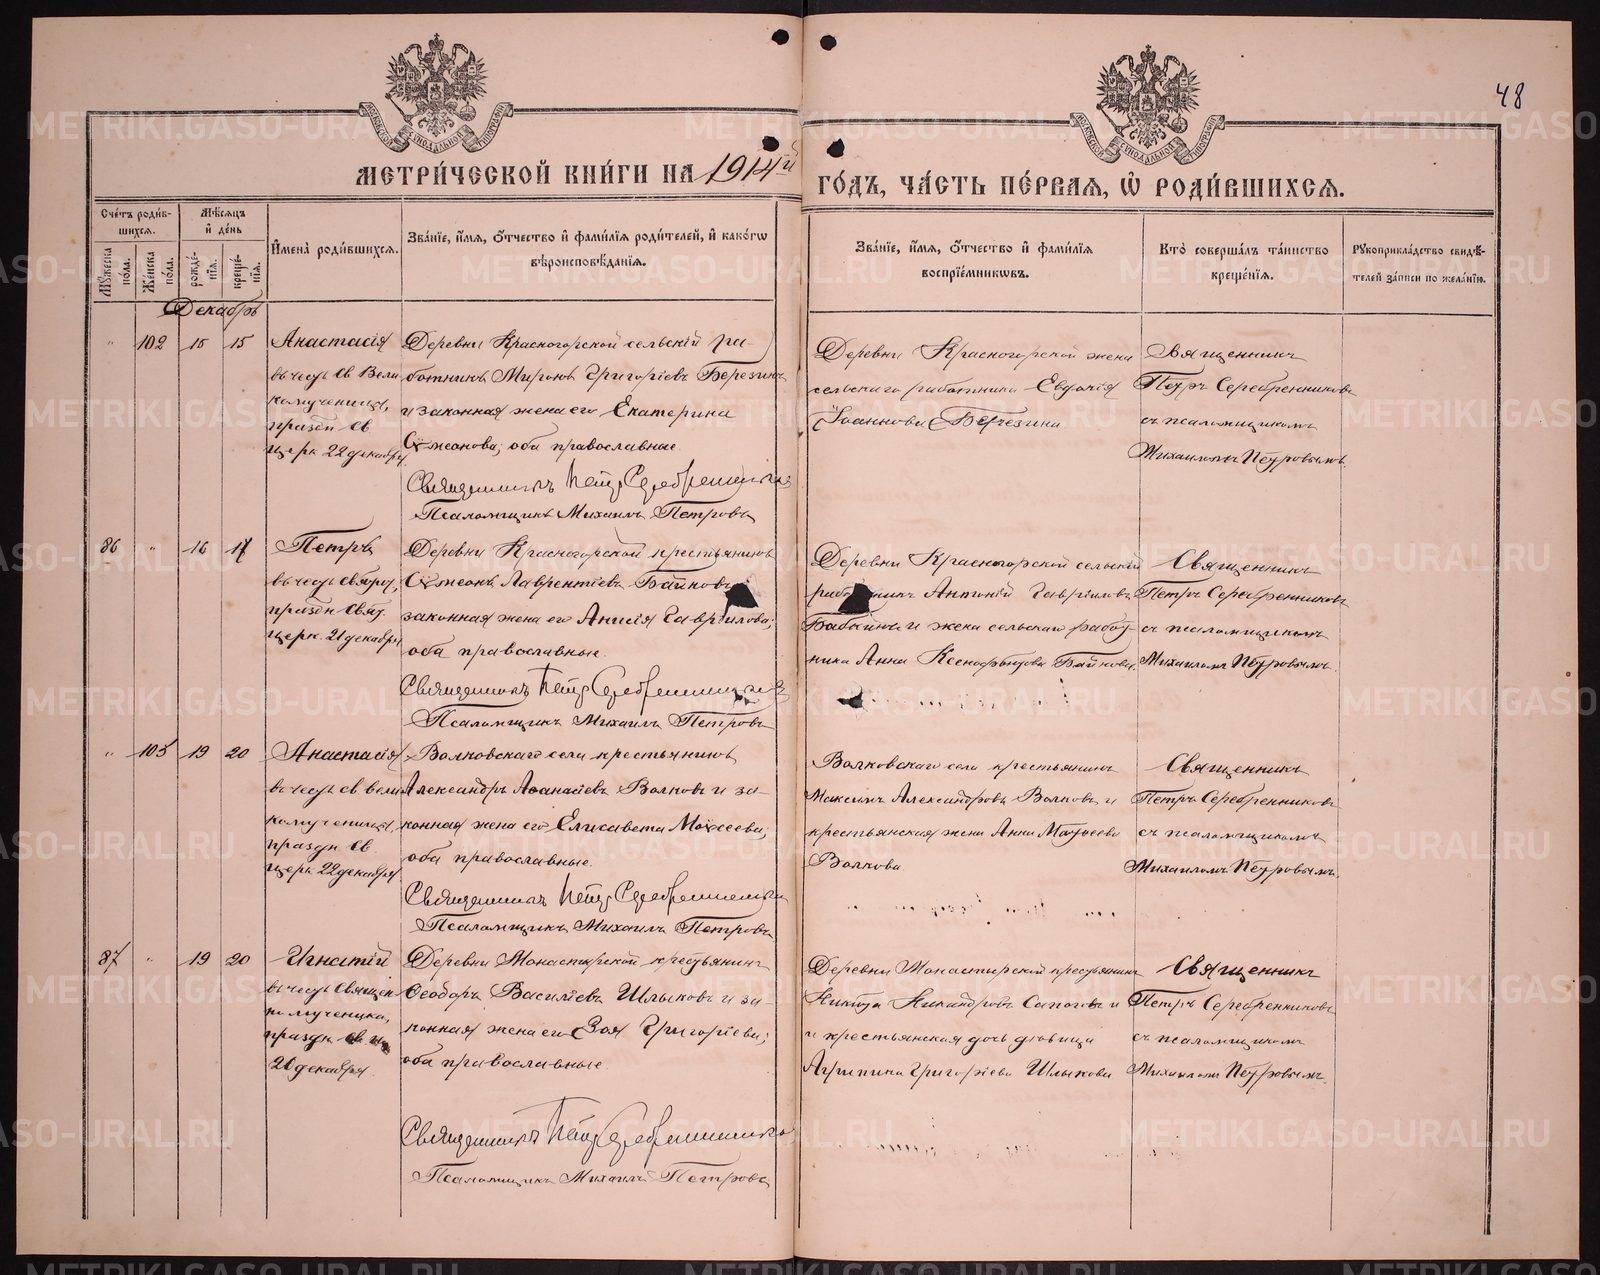 48
МЕТРИ́ЧЕСКОЙ КНИ́ГИ НА 1914й ГО́ДЪ, ЧА́СТЬ ПЕ́РВАЯ, Ѡ҆ РОДИ́ВШИХСЯ.
Сче́тъ роди́в-
шихся.
Мѣ́сяцъ
и҆ де́нь
Мꙋ́жеска по́ла.
Же́нска по́ла.
рожде́-
нїѧ.
креще́-
нїѧ.
И҆мена̀ роди́вшихся.
Зва́нїе, и҆́мѧ, ѻ҆́тчество и҆ фами́лїѧ роди́телей, и҆ како́гѡ
вѣроисповѣ́данїѧ.
Зва́нїе, и҆́мѧ, ѻ҆́тчество и҆ фами́лїѧ
воспрїе́мникѡвъ.
Кто̀ соверша́лъ та́инство
креще́нїѧ.
Рꙋкоприкла́дство свидѣ́-
телей за́писи по жела́нїю.
Декабрь
" 102 15 15
Анастасія
въ честь св Вели
комученицы,
праздн св
церк 22 декабря
Деревни Красногорской сельскій ра-
ботникъ Миронъ Григоріевъ Березинъ
и законная жена его Екатерина
Сѵмеонова; оба православные.
Священникъ Петръ Серебренниковъ
Псаломщикъ Михаилъ Петровъ
Деревни Красногорской жена
сельскаго работника Евдокія
Іоаннова Березина
Священникъ
Петръ Серебренниковъ
съ псаломщикомъ
Михаиломъ Петровымъ.
86 " 16 17
Петръ
въ честь
праздн Свят.
церк. 21 декабря
Деревни Красногорской крестьянинъ
Сѵмеонъ Лаврентіевъ Байновъ
законная жена его Анисія Гавріилова;
оба православные.
Священникъ Петръ Серебренниковъ
Псаломщикъ Михаилъ Петровъ
Деревни Красногорской сельскій
работникъ Антоній Гавріиловъ
и жена сельскаго работ-
ника Анна Ксенофонтова Байнова
Священникъ
Петръ Серебренниковъ
съ псаломщикомъ
Михаиломъ Петровымъ.
" 103 19 20
Анастасія
въ честь св вели
комученицы,
праздн св.
церк 22 декабря
Волковскаго села крестьянинъ
Александръ Аѳанасіевъ Волковъ и за-
конная жена его Елисавета Моѵсеева;
оба православные.
Священникъ Петръ Серебренниковъ
Псаломщикъ Михаилъ Петровъ
Волковскаго села крестьянинъ
Максимъ Александровъ Волковъ и
крестьянская жена Анна Матѳеева
Волкова
Священникъ
Петръ Серебренниковъ
съ псаломщикомъ
Михаиломъ Петровымъ.
87 " 19 20
Игнатій
въ честь Священ
номученика,
праздн св. ц
20 декабря.
Деревни Монастырской крестьянинъ
Ѳеодоръ Василіевъ Шлыковъ и за-
конная жена его Зоя Григоріева;
оба православные.
Священникъ Петръ Серебренниковъ
Псаломщикъ Михаилъ Петровъ
Деревни Монастырской крестьянинъ
Никита Никандровъ Сапоговъ и
и крестьянская дочь дѣвица
Агрипина Григоріева Шлыкова
Священникъ
Петръ Серебренниковъ
съ псаломщикомъ
Михаиломъ Петровымъ.
METRIKI.GASO-URAL.RU